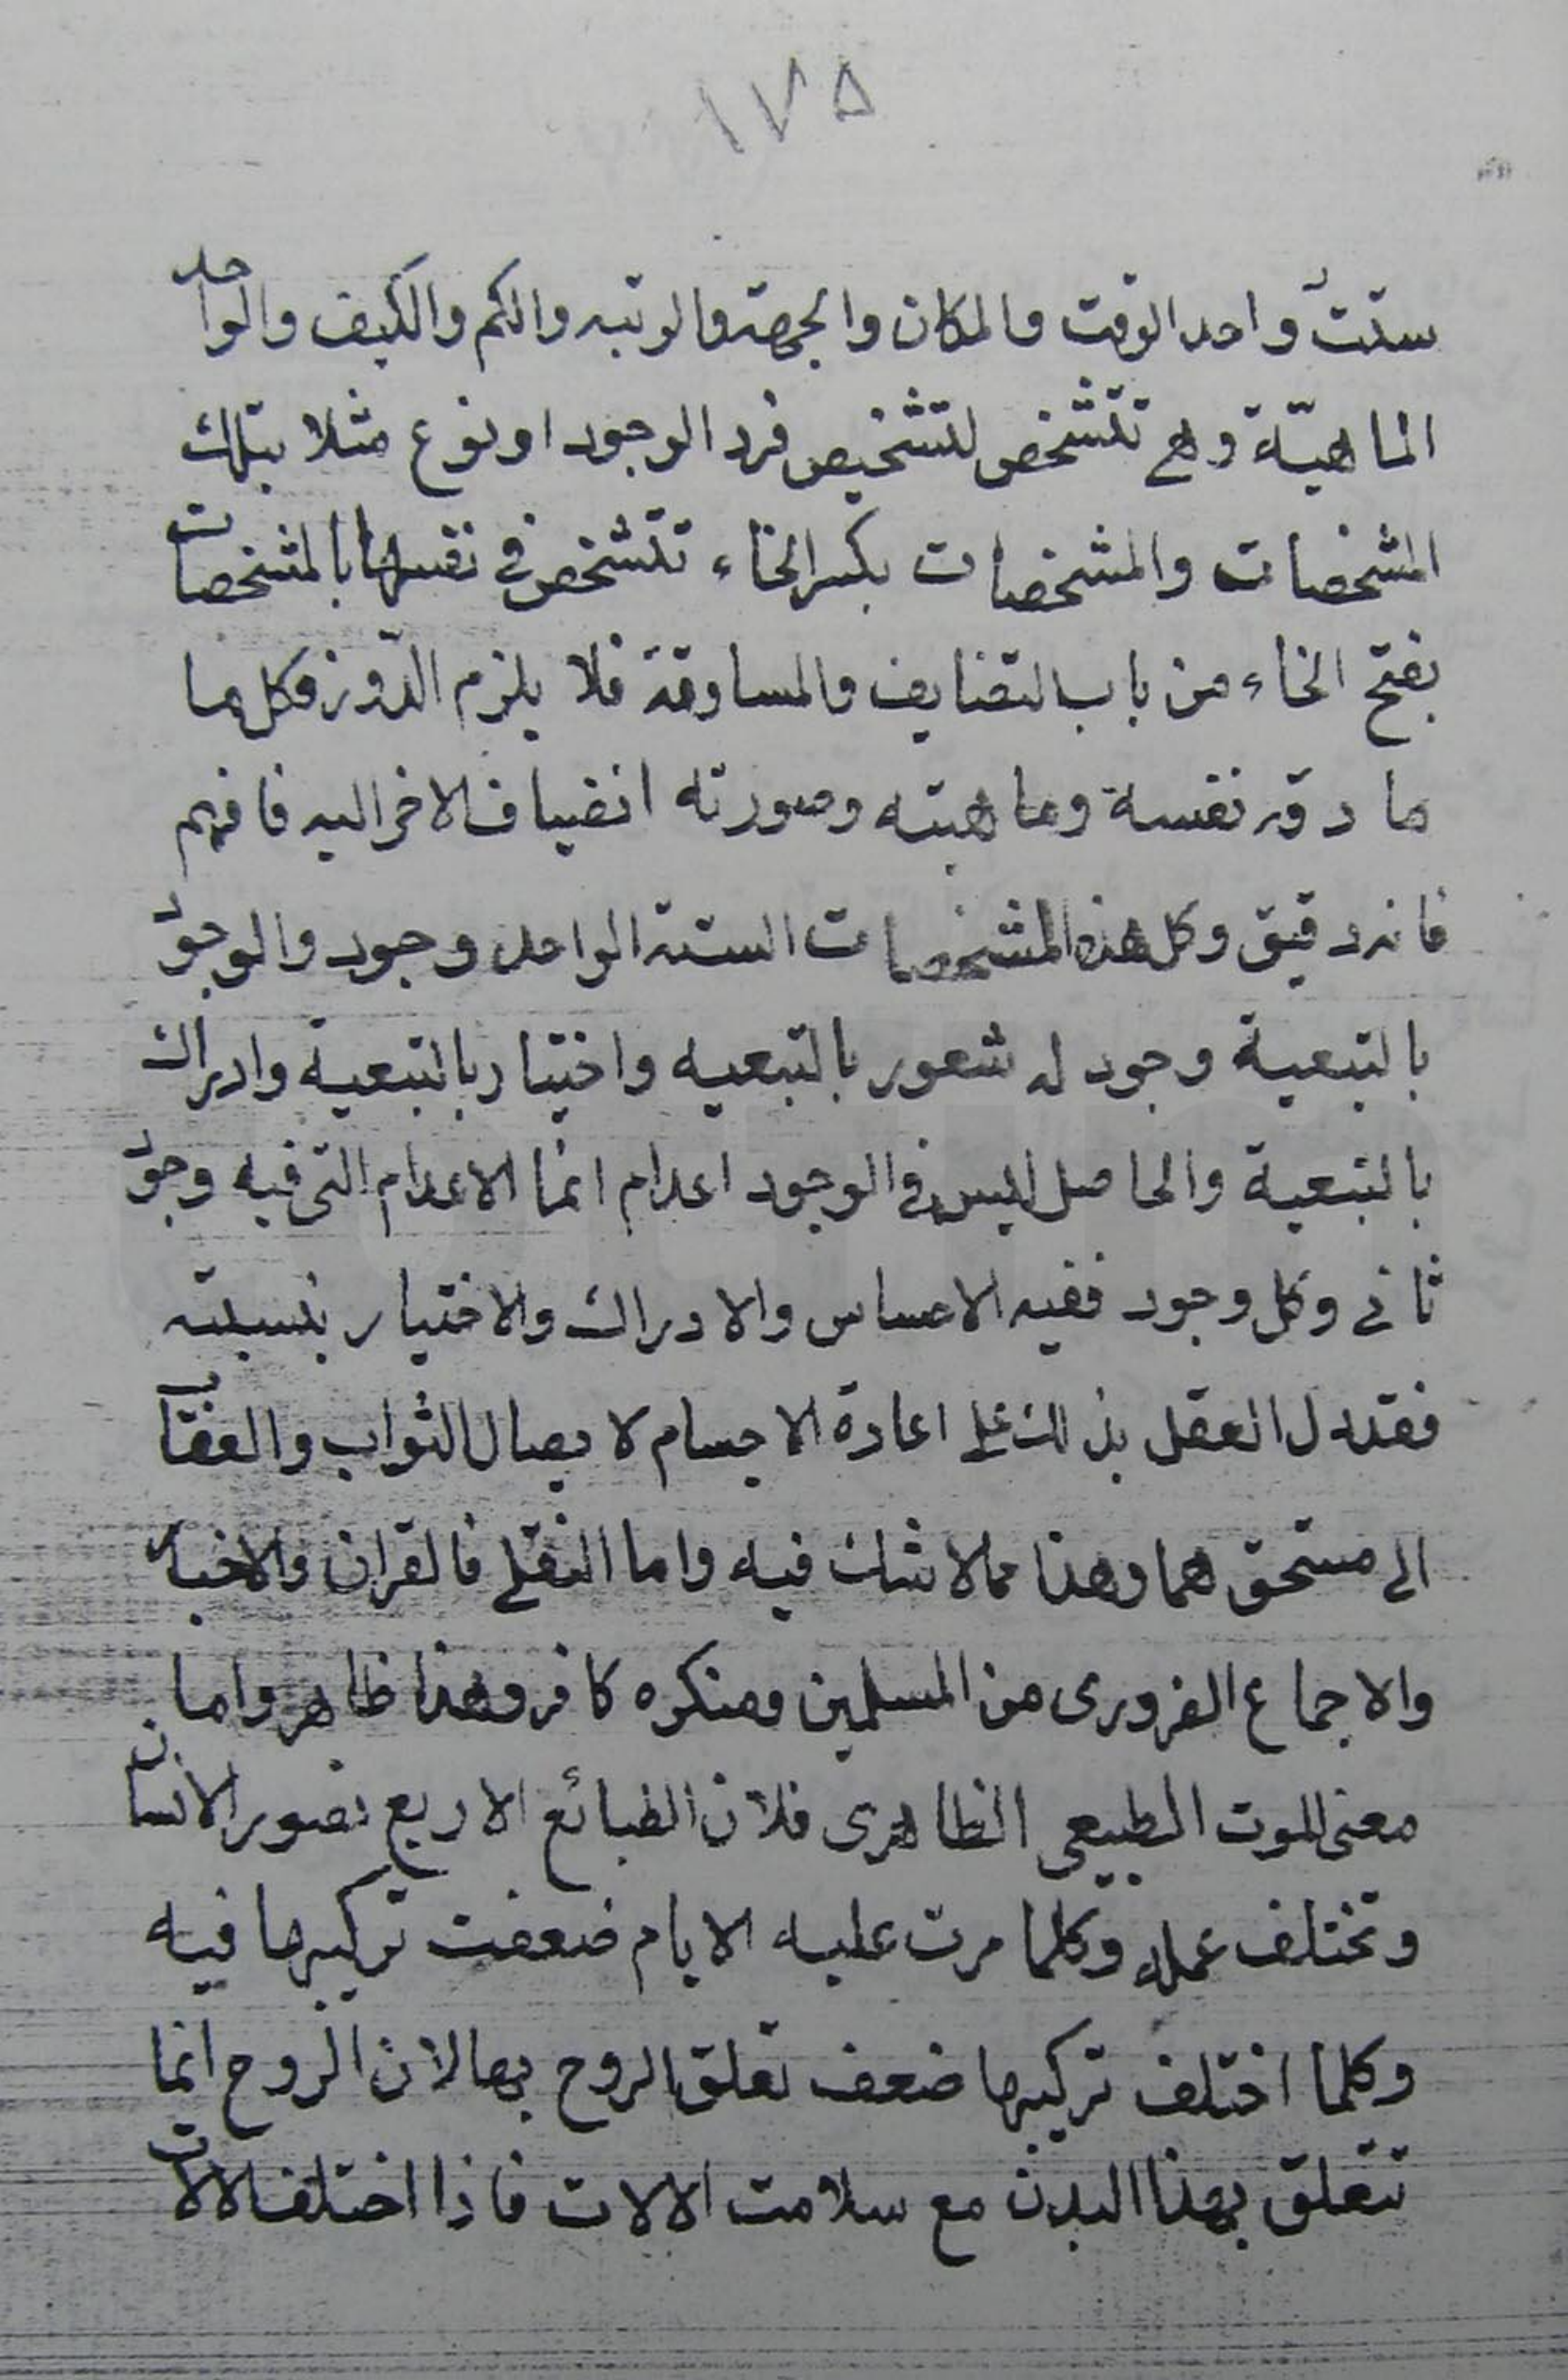 ١٧٥
ستة وواحد الوقت والمكان والجهة والرتبه والكم والكيف والواحد
الماهيّة وهي تتشخص لتشخيص فرد الوجود او نوع مثلا بتلك
المشخصات والمشخصات بكسر الخاء تتشخص في نفسها بالمشخصات
بفتح الخاء من باب التضايف والمساوقة فلا يلزم الدّور وكل ما
مادته نفسه وماهيته وصورته انضياف الاخر اليه فافهم
فانه دقيق وكل هذه المشخصات الستة الواحد وجود والوجود
بالتبعية وجود له شعور بالتبعيه واختيار بالتبعية وادراك
بالتبعية والحاصل ليس في الوجود اعدام انما الاعدام التى فيه وجود
ثانى وكل وجود ففيه الاحساس والادراك والاختيار بنسبته
فقد دل العقل بذلك على اعادة الاجسام لايصال الثواب والعقاب
الى مستحقهما وهذا مما لا شك فيه واما النقلى فالقران والاخبار
والاجماع الضرورى من المسلمين ومنكره كافر وهذا ظاهر واما
معنى الموت الطبيعى الظاهرى فلان الطبائع الاربع تصور الانسان
وتختلف عمله وكلما مرت عليه الايام ضعفت تركيبها فيه
وكلما اختلف تركيبها ضعف تعلق الروح بها لان الروح انما
تتعلق بهذا البدن مع سلامت الالات فاذا اختلف الالات